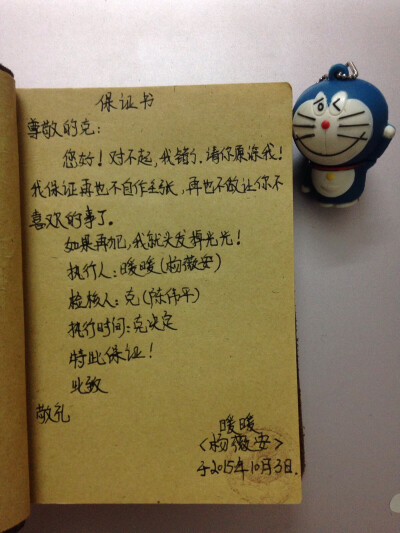 保证书
尊敬的克:
您好!对不起,我错了,请你原谅我!
我保证再也不自作主张,再也不做让你不
喜欢的事了。
如果再犯,我就头发掉光光!
执行人:暖暖(杨薇安)
检核人:克(陈伟平)
执行时间:克决定
特此保证!
此致
敬礼
暖暖
<杨薇安>
于2015年10月3日.